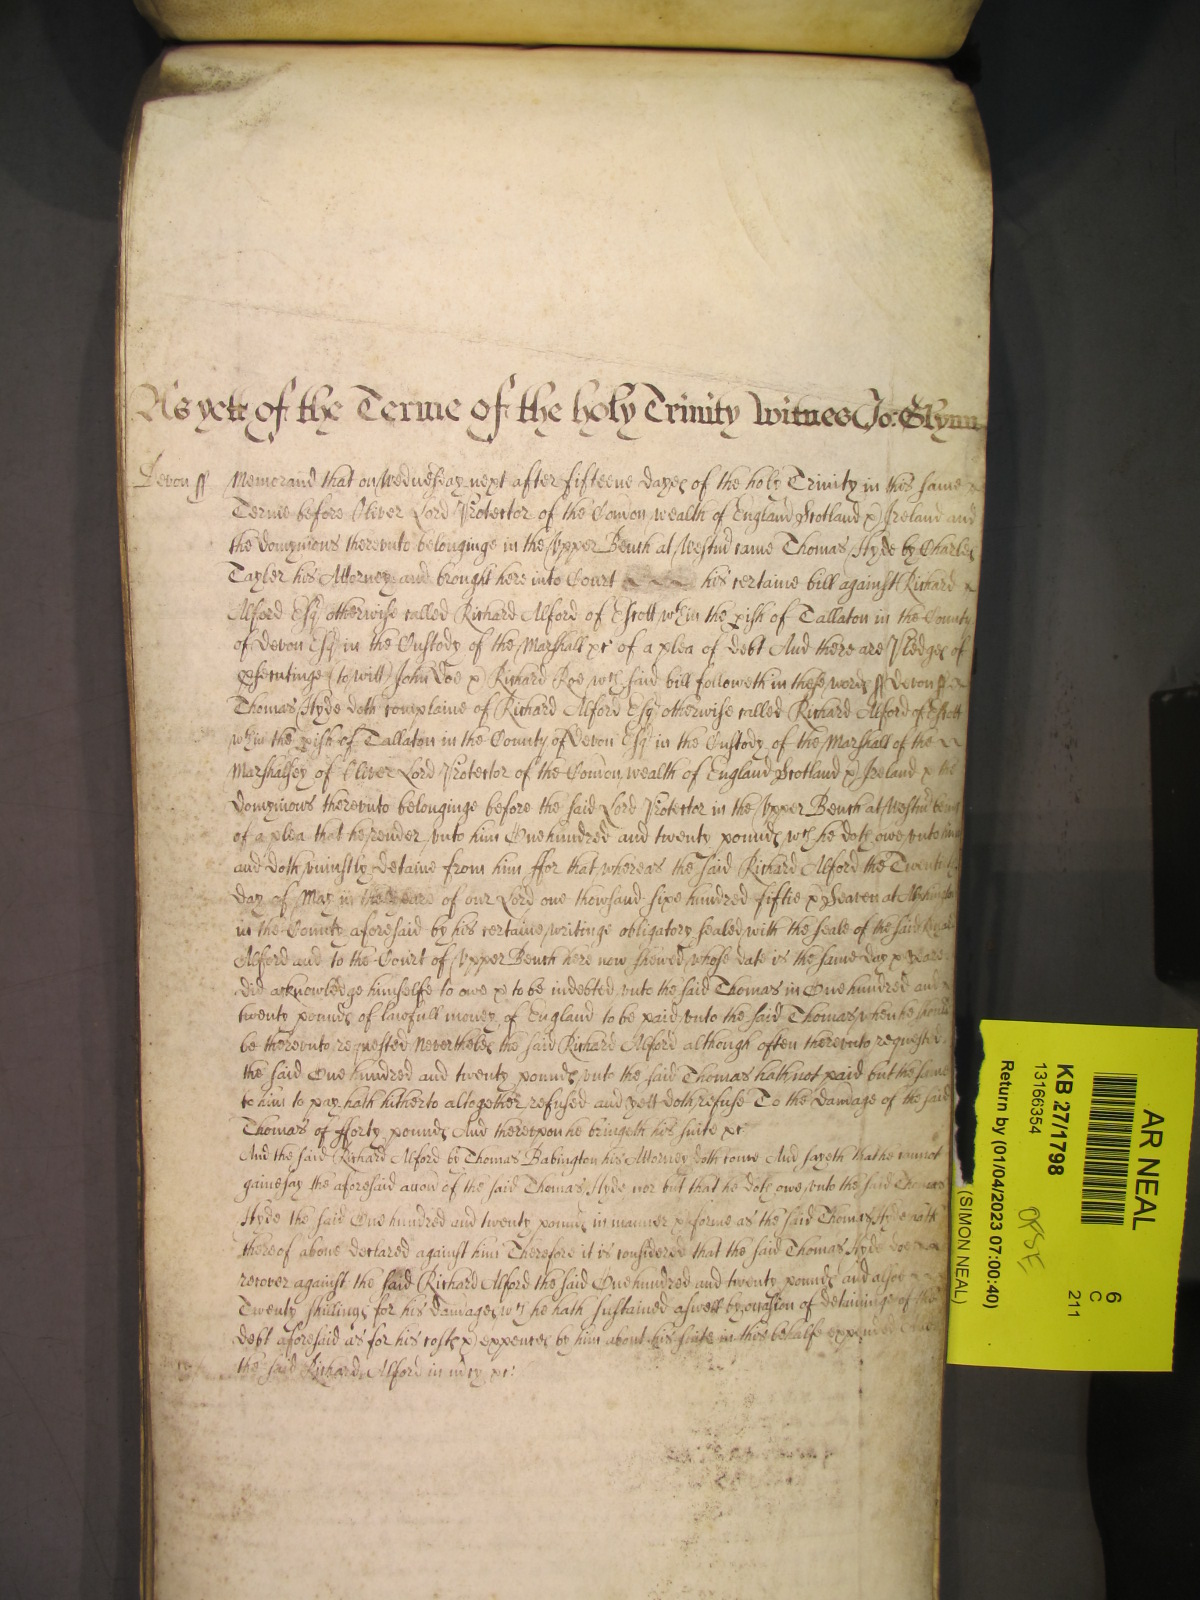 As yett of the Terme of the holy Trinity Witnes Jo: Glynn
Devon ss Memorand that on Wednesday next after fifteene dayes of the holy Trinity in this same
Terme before Oliver Lord Protector of the Comon wealth of England Scotland & Ireland and
the domynions therevnto belonginge in the Vpper Bench at Westm̃ came Thomas Hyde by Charles
Tayler his Attorney and brought here into Court his certaine bill against Richard
Alford Esq̃ otherwise called Richard Alford of Escott wthin the pish of Tallaton in the County
of Devon Esq̃ in the Custody of the Marshall &c of a plea of debt And there are Pledges of
psecutinge (to witt) John Doe & Richard Roe wch said bill followeth in these words ss Devon ss
Thomas Hyde doth complaine of Richard Alford Esq̃ otherwise called Richard Alford of Escott
wthin the pish of Tallaton in the County of Devon Esq̃ in the Custody of the Marshall of the
Marshalsey of Oliver Lord Protector of the Comon wealth of England Scotland & Ireland & the
domynions therevnto belonginge before the said Lord Protector in the Vpper Bench at Westm̃ being
of a plea that he render vnto him One hundred and twenty pounds wch he doth owe vnto him
and doth vniustly detaine from him ffor that whereas the said Richard Alford the Twentieth
day of May in the yeare of our Lord one thowsand sixe hundred fiftie & Seaven at
in the County aforesaid by his certaine writinge obligatory sealed with the seale of the said Richard
Alford and to the Court of Vpper Bench here now shewed whose date is the same day & yeare
did acknowledge himselfe to owe & to be indebted vnto the said Thomas in One hundred and
twenty pounds of lawfull money of England to be paid vnto the said Thomas when he should
be therevnto requested Neverthelés the said Richard Alford although often therevnto requested
the said One hundred and twenty pounds vnto the said Thomas hath not paid but the same
to him to pay hath hitherto altogether refused and yett doth refuse To the damage of the said
Thomas of fforty pounds And therevpon he bringeth his suite &c
And the said Richard Alford by Thomas Babington his Attorney doth come And sayeth that he cannot
gainesay the aforesaid accon of the said Thomas Hyde nor but that he doth owe vnto the said Thomas
Hyde the said One hundred and twenty pounds in manner & forme as the said Thomas Hyde hath
thereof above declared against him Therefore it is considered that the said Thomas Hyde doe
recover against the said Richard Alford the said One hundred and twenty pounds and alsoe
Twenty shillings for his damages wch he hath sustained aswell by occasion of detaininge of the
debt aforesaid as for his costs & expences by him about his suite in this behalfe expended And
the said Richard Alford in mcy &c:
AR NEAL
6
C
211
KB 27/1798
13166354
OPSF
Return by (01/04/2023 07:00:40)
(SIMON NEAL)